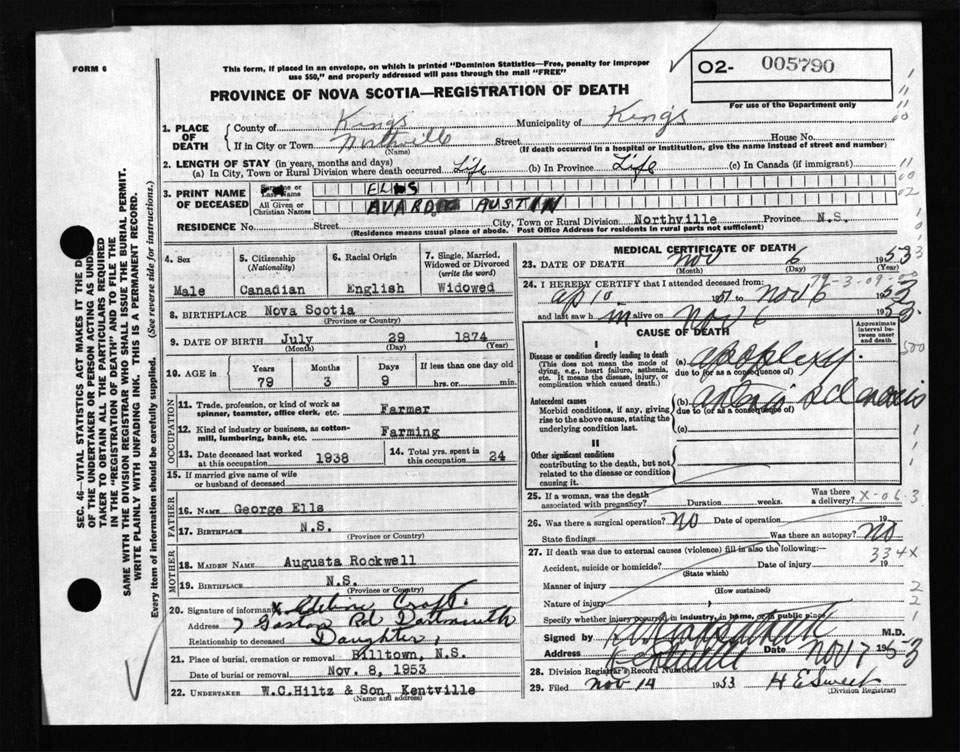 FORM 6
This form, if placed in an envelope, on which is printed "Dominion Statistics—Free, penalty for improper
use $50," and properly addressed will pass through the mail "FREE"
PROVINCE OF NOVA SCOTIA—REGISTRATION OF DEATH
02- 005790
For use of the Department only
1. PLACE OF DEATH
County of Kings Municipality of Kings
If in City or Town Northville Street House No.
(Name) (If death occurred in a hospital or institution, give the name instead of street and number)
2. LENGTH OF STAY (in years, months and days)
(a) In City, Town or Rural Division where death occurred Life (b) In Province Life (c) In Canada (if immigrant)
3. PRINT NAME OF DECEASED
Surname or Last Name ELLS
All Given or Christian Names AVARD AUSTIN
RESIDENCE No. Street City, Town or Rural Division Northville Province N.S.
(Residence means usual place of abode. Post Office Address for residents in rural parts not sufficient)
4. Sex
Male
5. Citizenship
(Nationality)
Canadian
6. Racial Origin
English
7. Single, Married,
Widowed or Divorced
(write the word)
Widowed
8. BIRTHPLACE Nova Scotia
(Province or Country)
9. DATE OF BIRTH July 29 1874
(Month) (Day) (Year)
10. AGE in
Years Months Days If less than one day
79 3 9 hrs. or min.
OCCUPATION
11. Trade, profession, or kind of work as
spinner, teamster, office clerk, etc. Farmer
12. Kind of industry or business, as cotton-
mill, lumbering, bank, etc. Farming
13. Date deceased last worked
at this occupation 1938
14. Total yrs. spent in
this occupation 24
15. If married give name of wife
or husband of deceased
FATHER
16. NAME George Ells
17. BIRTHPLACE N.S.
(Province or Country)
MOTHER
18. MAIDEN NAME Augusta Rockwell
19. BIRTHPLACE N.S.
(Province or Country)
20. Signature of informant
Address 7 Gaston Rd Dartmouth
Relationship to deceased Daughter
21. Place of burial, cremation or removal Billtown, N.S.
Date of burial or removal Nov. 8, 1953
22. UNDERTAKER W.C.Hiltz & Son, Kentville
(Name and address)
MEDICAL CERTIFICATE OF DEATH
23. DATE OF DEATH Nov 6 1953
(Month) (Day) (Year)
24. I HEREBY CERTIFY that I attended deceased from:
79-3-09-00
and last saw h im alive on Nov 6 1953
CAUSE OF DEATH
Approximate
interval be-
tween onset
and death
I
Disease or condition directly leading to death
(This does not mean the mode of
dying, e.g., heart failure, asthenia,
etc. It means the disease, injury, or
complication which caused death.)
(a) apoplexy
due to (or as a consequence of)
Antecedent causes
Morbid conditions, if any, giving
rise to the above cause, stating the
underlying condition last.
(b) arterio sclerosis
due to (or as a consequence of)
(c)
II
Other significant conditions
contributing to the death, but not
related to the disease or condition
causing it.
25. If a woman, was the death
associated with pregnancy? Duration weeks. Was there
a delivery? X-06.3
26. Was there a surgical operation? NO Date of operation 19
State findings Was there an autopsy? NO
27. If death was due to external causes (violence) fill in also the following:— 334X
Accident, suicide or homicide? Date of injury 19
(State which)
Manner of injury
(How sustained)
Nature of injury
Specify whether injury occurred in industry, in home, or in public place
Signed by M.D.
Address Kentville Date NOV 7 1953
28. Division Registrar's Record Number
29. Filed Nov 14 1953 H E Sweet
(Division Registrar)
SEC. 46—VITAL STATISTICS ACT MAKES IT THE D
OF THE UNDERTAKER OR PERSON ACTING AS UNDE
TAKER TO OBTAIN ALL THE PARTICULARS REQUIRED
IN THE "REGISTRATION OF DEATH" AND TO FILE THE
SAME WITH THE DIVISION REGISTRAR WHO SHALL ISSUE THE BURIAL PERMIT.
WRITE PLAINLY WITH UNFADING INK. THIS IS A PERMANENT RECORD.
Every item of information should be carefully supplied. (See reverse side for instructions.)